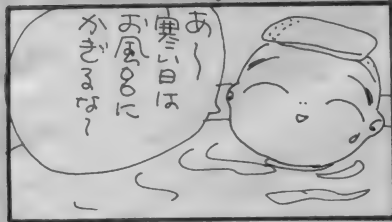 あ～
寒い日は
お風呂に
かぎるな～